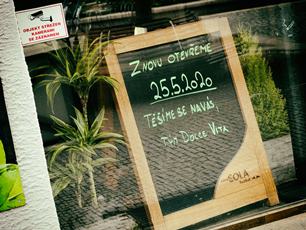 OBJEKT STŘEŽEN
KAMERAMI
SE ZÁZNAMEM
ZNOVU OTEVŘEME
25.5.2020
TĚŠÍME SE NA VÁS,
TÝM DOLCE VITA
SOLA